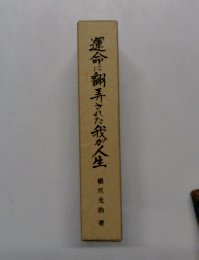 運命に翻弄された我が人生
光治 著